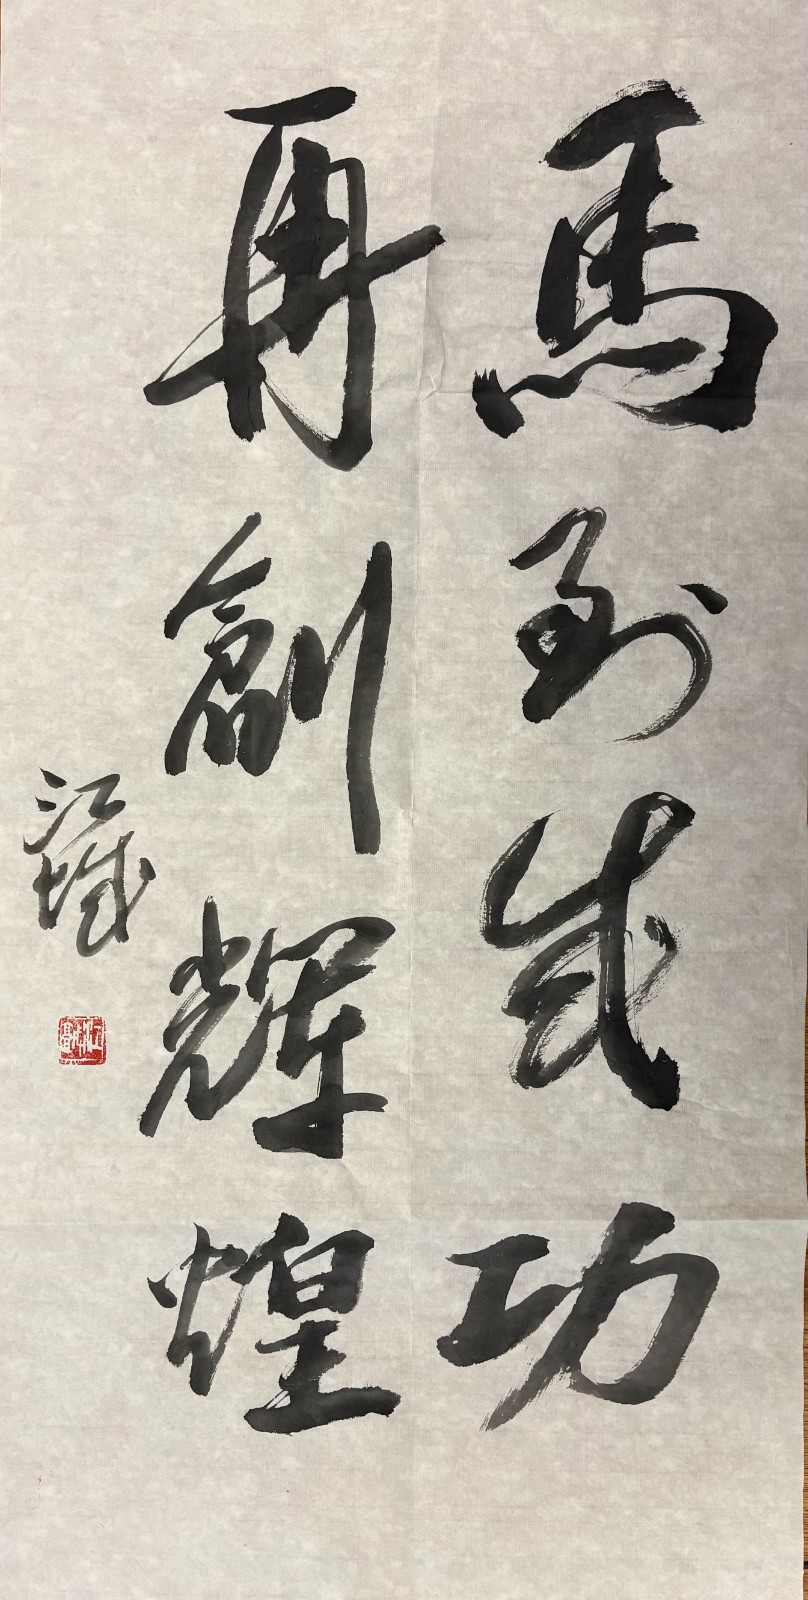 馬到成功
再創輝煌
江城